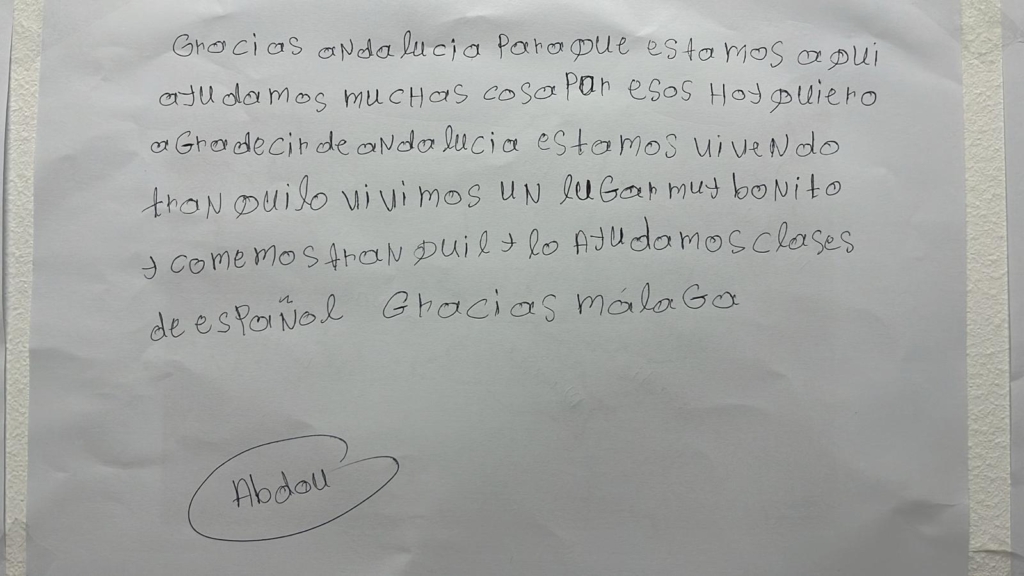 Gracias aNdalucia Paraque estamos aqui
ayudamos mucHas cosa Par esos Hoy quiero
aGradecir de aNdalucia estamos viveNdo
traNquilo vivimos uN luGar muy boNito
y comemos traNquil y lo Ayudamos clases
de esPañol Gracias málaGa
Abdou